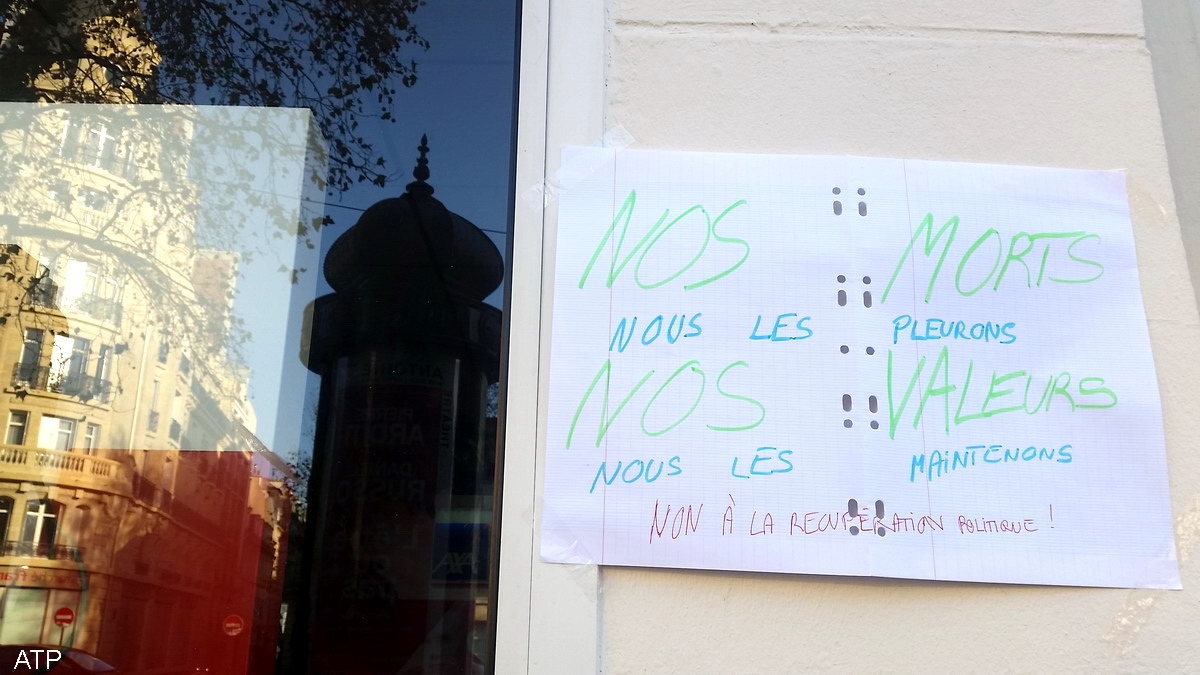 NOS MORTS
NOUS LES PLEURONS
NOS VALEURS
NOUS LES MAINTENONS
NON À LA RECUPÉRATION POLITIQUE !
AXA
ATP